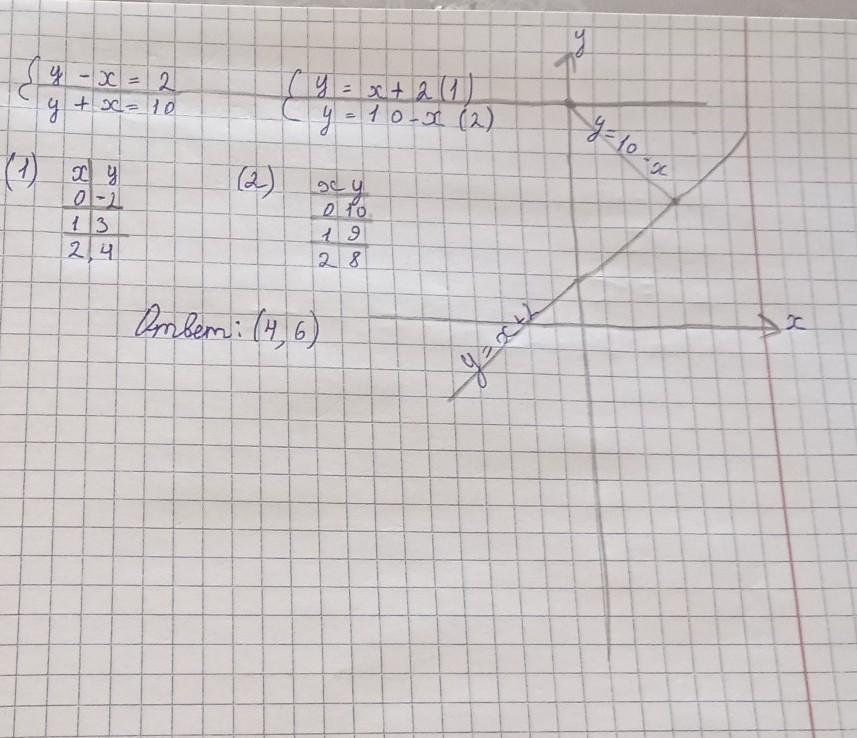 { y - x = 2
y + x = 10
{ y = x + 2 (1)
y = 10 - x (2)
(1) x y
0 -2
1 3
2 4
(2) x y
0 10
1 9
2 8
Ответ: (4, 6)
y
y = 10 - x
x
y = x + 2